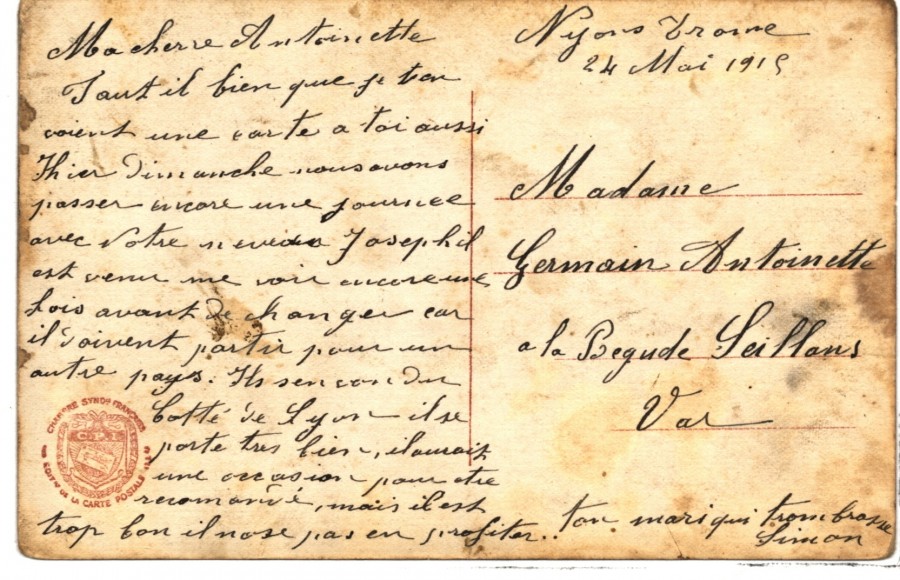 Ma cherre Antoinette
Faut il bien que je ten
voient une carte a toi aussi
Thier Dimanche nousavons
passer encore une journee
avec Votre neveu Joseph il
est venu me voir encore une
fois avant de changer car
il doivent partir pour un
autre pays. Ils sen von du
cotté de Lyon il se
porte tres bien, il aurait
une occasion pour etre
recomandé, mais il est
trop bon il nose pas en profiter..
ton mari qui trembrasse
Simon
Nyons Drome
24 Mai 1915
Madame
Germain Antoinette
a la Begude Seillans
Var
CHAMBRE SYNDle FRANÇAISE
C.P.I
DE LA CARTE POSTALE